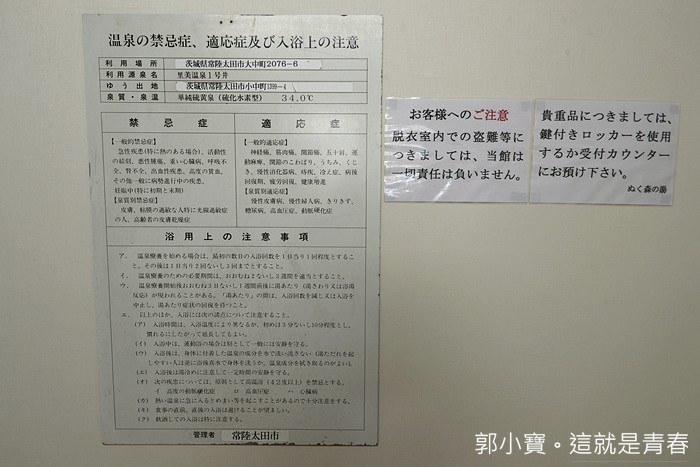 温泉の禁忌症、適応症及び入浴上の注意
利用場所 茨城県常陸太田市大中町2076-6
利用源泉名 里美温泉1号井
ゆう出地 茨城県常陸太田市小中町1399-4
泉質・泉温 単純硫黄泉(硫化水素型) 34.0℃
禁忌症
【一般的禁忌症】
急性疾患(特に熱のある場合)、活動性
の結核、悪性腫瘍、重い心臓病、呼吸不
全、腎不全、出血性疾患、高度の貧血、
その他一般に病勢進行中の疾患、
妊娠中(特に初期と末期)
【泉質別禁忌症】
皮膚、粘膜の過敏な人特に光線過敏症
の人、高齢者の皮膚乾燥症
適応症
【一般的適応症】
神経痛、筋肉痛、関節痛、五十肩、運
動麻痺、関節のこわばり、うちみ、くじ
き、慢性消化器病、痔疾、冷え症、病後
回復期、疲労回復、健康増進
【泉質別適応症】
慢性皮膚病、慢性婦人病、きりきず、
糖尿病、高血圧症、動脈硬化症
浴用上の注意事項
ア. 温泉療養を始める場合は、最初の数日の入浴回数を1日当り1回程度とするこ
と。その後は1日当り2回ないし3回までとすること。
イ. 温泉療養のための必要期間は、おおむね2ないし3週間を適当とすること。
ウ. 温泉療養開始後おおむね3日ないし1週間前後に湯あたり(湯さわり又は浴湯
反応)が現われることがある。「湯あたり」の間は、入浴回数を減じ又は入浴を
中止し、湯あたり症状の回復を待つこと。
エ. 以上のほか、入浴には次の諸点について注意すること。
(ア) 入浴時間は、入浴温度により異なるが、初めは3分ないし10分程度とし、
慣れるにしたがって延長してもよい。
(イ) 入浴中は、運動浴の場合は別として一般には安静を守る。
(ウ) 入浴後は、身体に付着した温泉の成分を水で洗い流さない(湯ただれを起
しやすい人は逆に浴後真水で身体を洗うか、温泉成分を拭き取るのがよい)。
(エ) 入浴後は湯冷めに注意して一定時間の安静を守る。
(オ) 次の疾患については、原則として高温浴(42度以上)を禁忌とする。
イ 高度の動脈硬化症 ロ 高血圧症 ハ 心臓病
(カ) 熱い温泉に急に入るとめまい等を起こすことがあるので十分注意をする。
(キ) 食事の直前、直後の入浴は避けることが望ましい。
(ク) 飲酒しての入浴は特に注意する。
管理者 常陸太田市
お客様へのご注意
脱衣室内での盗難等に
つきましては、当館は
一切責任は負いません。
貴重品につきましては、
鍵付きロッカーを使用
するか受付カウンター
にお預け下さい。
ぬく森の湯
郭小寶。這就是青春